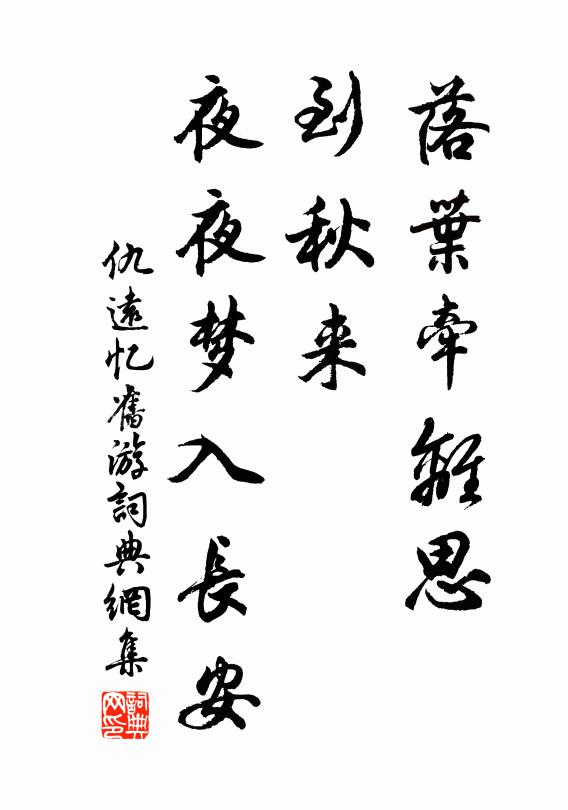 落葉牽離思
到秋来
夜夜梦入長安
仇遠忆舊游詞典網集
詞典网印